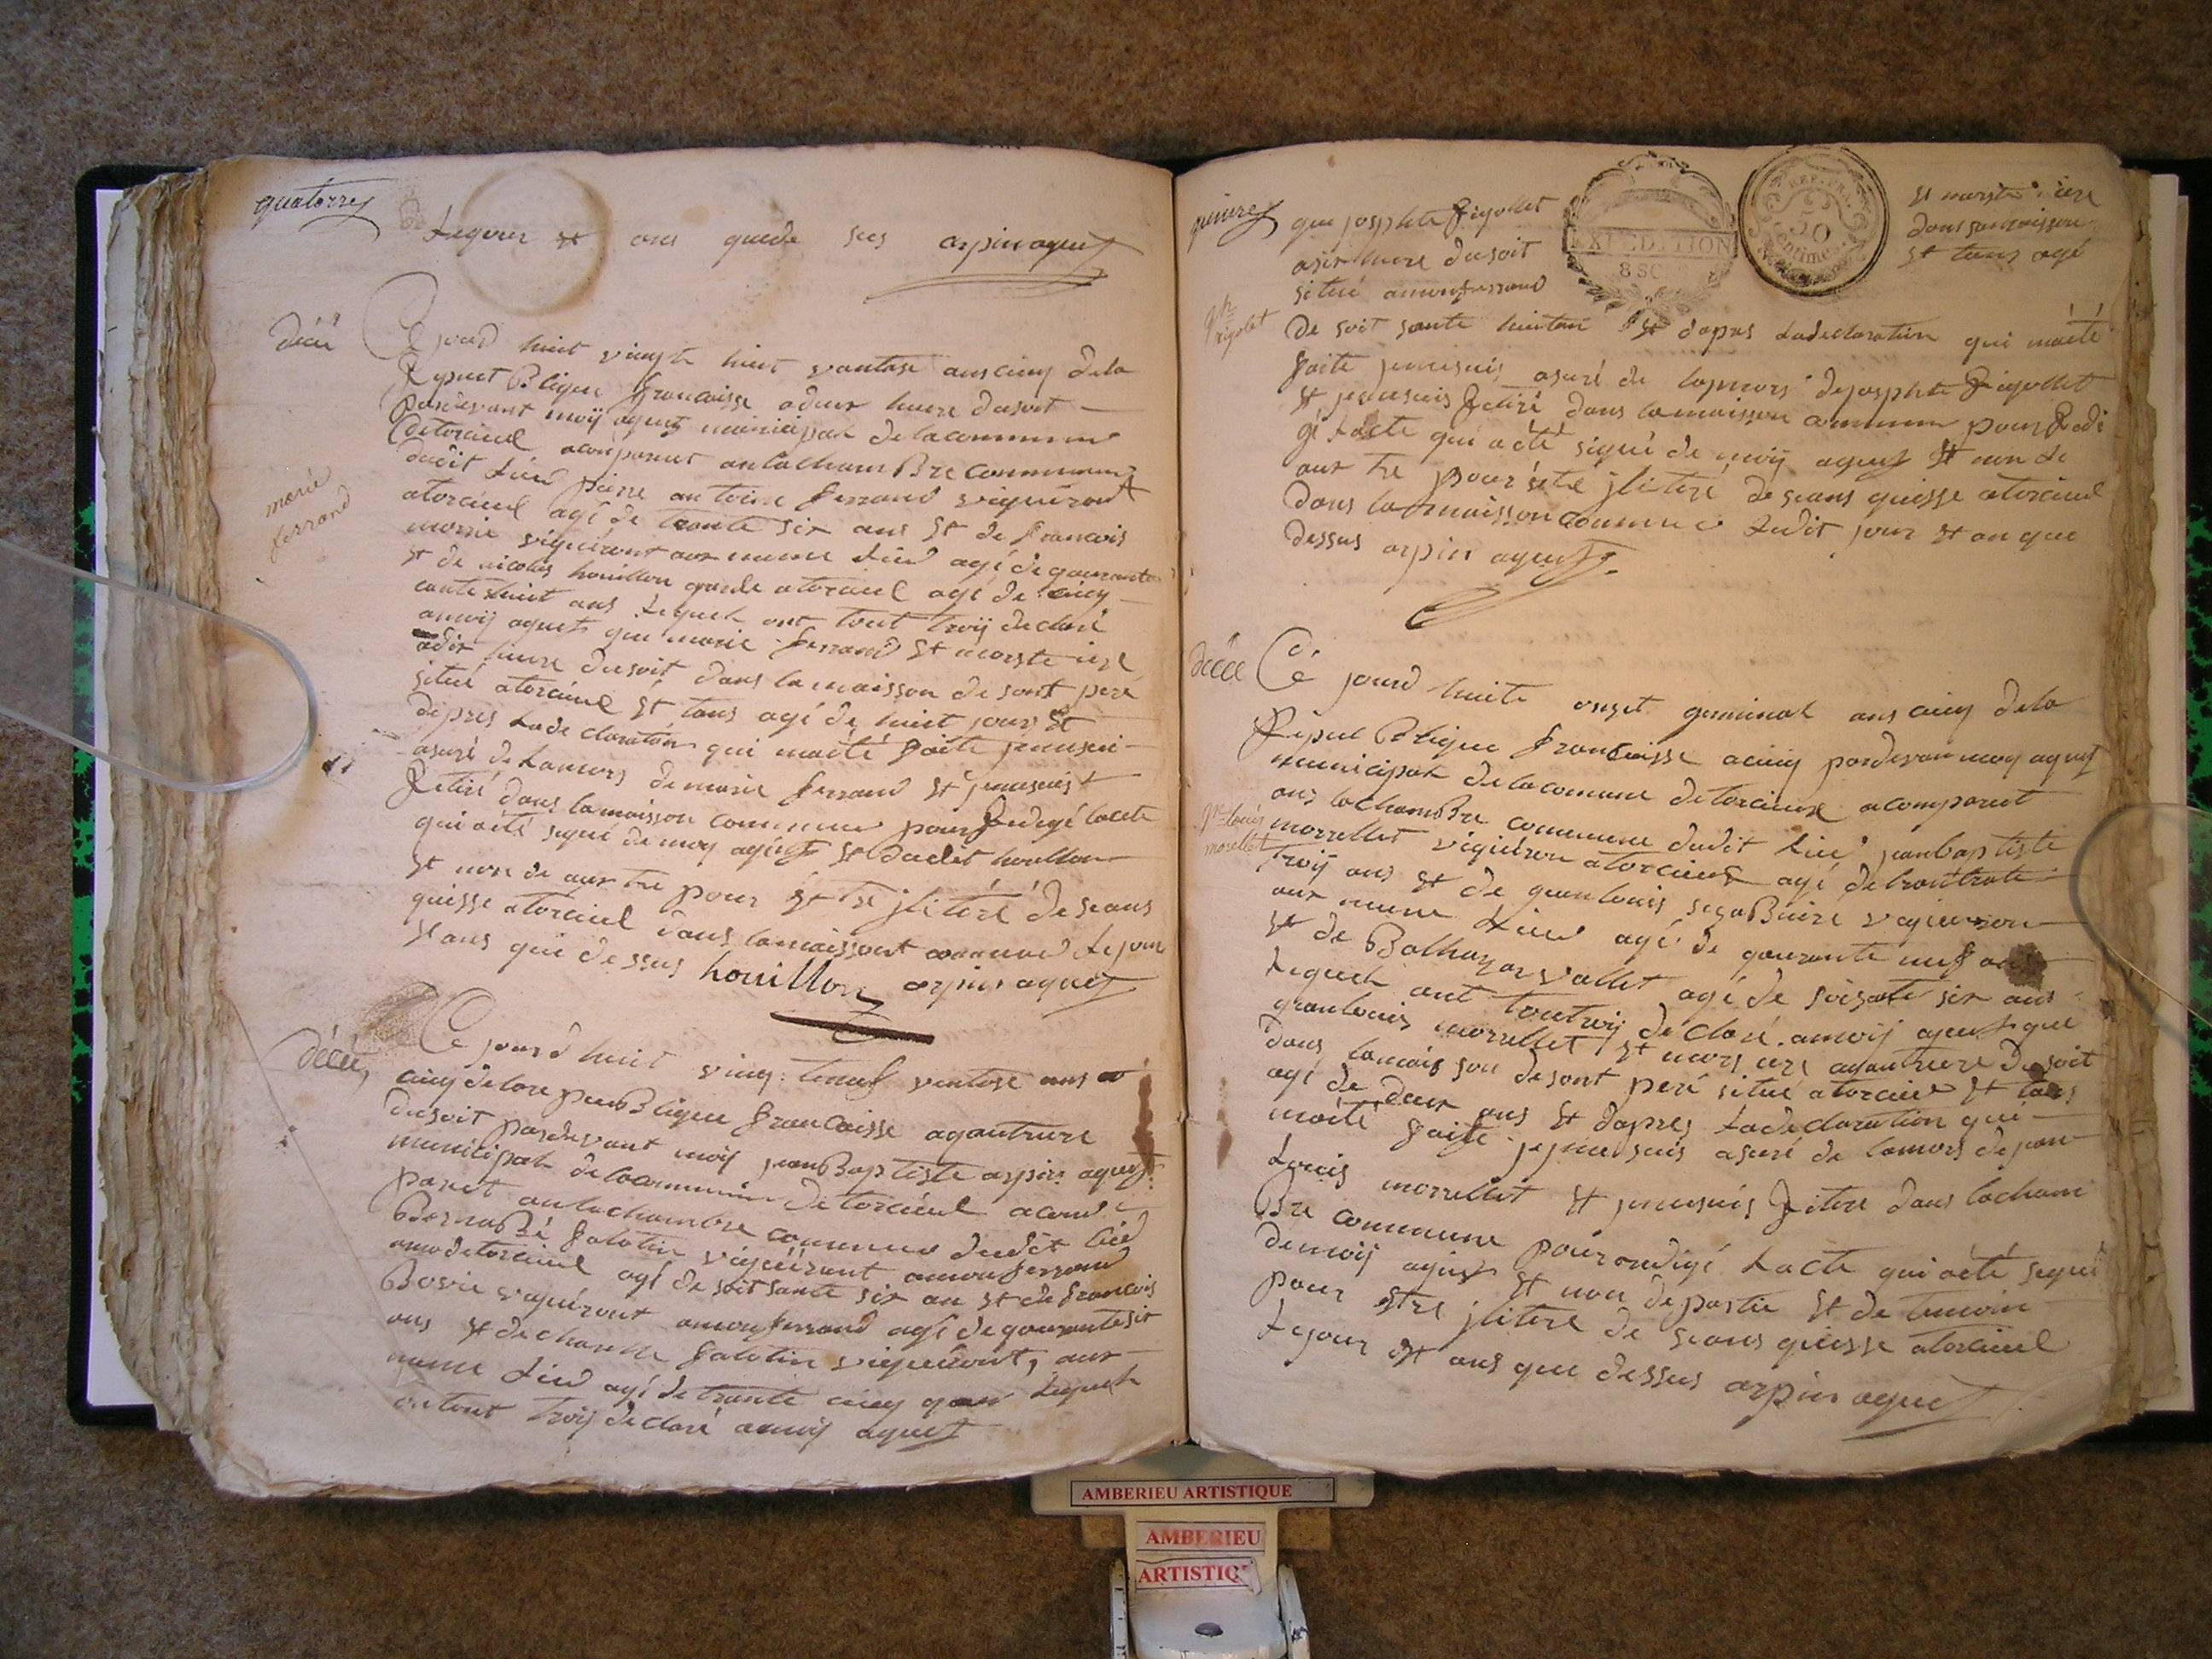 quatorze
Le jour et ans que de sus arpin agent
décé
Ce jourd huit vingte huit vantose ans cinq dela
Republique francaisse a deux heure dusoit
pardevant moÿ agent municipal de la commune
detorcieul a conparut anlachambre commune
dudit Lieu pierre antoine ferrand vigniront
marie
ferrand
atorcieul agé de trante six ans et de francois
morrie vigniront aux meme Lieu agé de quarante
et de nicolas houillon garde atorcieul agé de cinq
cante huit ans Lequelt ont tout troij declaré
amoij agent que marie ferrand et morste iere
a dix heure dusoit dans la maisson de sont pere
situé atorcieul et tans agé de huit jours et
depres Ladeclaration qui maété faite jemesui
asuré de Lamors de marie ferrand et jemesuis
Retiré dans lamaisson commune pour Redigé lacte
qui aété signé de moy agent et dudit houllon
et non de aux tre pour et tre jlitéré de seans
quisse atorcieul dans lamaissont commune Le jour
et ans que dessus houillon arpin agent
décée
Ce jourd huit vingt tneuf ventose ans
cinq delare peublique francaisse aquatreure
dusoit pardevant moij jeanbaptiste arpin agent
municipal de lacommune de torcieul acom
paret anlachambre commune dudit lieu
Bernabé galotin vigniront amonferrand
amodetorcieul agé de soit sante six an et de francois
Bovie vigniront amonferrand agé de quarantesix
ans et de charelle galotin vigniront, aux
meme Lieu agé de trante cinq Lequelt
ontout troij declaré amoij agent
quinze
EXPEDITION
8 SO
REP. FRA.
50
centimes
que josphte Rigollet
asix heure dusoit
situé amonferrand
et morste iere
dans sa maisson
et tans agé
Rigolet
de soit sante huitan et dapres Ladeclaration qui maété
faite jemesuis asuré de lapmors dejosphte Rigollet
et jemesuis Retiré dans lamaisson commune pour Redi
gé Lacte qui aété signé de moij agent et non de
aux tre pour etre jlitéré de seans quisse atorcieul
dans lamaisson commune Ledit jour et an que
dessus arpin agent
décée
Cé jourd huite onzet germinal ans cinq dela
Republique francaisse acinq pardevan moy agent
municipal de lacomune detorcieux acomparut
ans lachambre commune dudit lieu janbaptiste
louis
morellet
morrellet vigniron atorcieux agé detrantrate
troij ans et de jeanlouis segobuire vigniron
aux meme Lieu agé de quarante neuf ans
et de Balthazar vallet agé de soisante six ans
Lequelt ont toutroij déclaré amoij agent que
jeanlouis morrellet et mors iere aquatreure dusoit
dans lamaisson desont peré situé atorcieu et tans
agé de deux ans et dapres Ladeclaration qui
maété faite jemesuis asuré de lamors dejean
Louis morrellet et jemesuis Retiré dans lacham
Bre commune pour redigé Lacte qui aété signé
demoij agent et non departie et de temoin
pour etre jlitéré de seans quisse atorcieul
Lejour et ans que dessus arpin agent
AMBERIEU ARTISTIQUE
AMBERIEU
ARTISTIQ